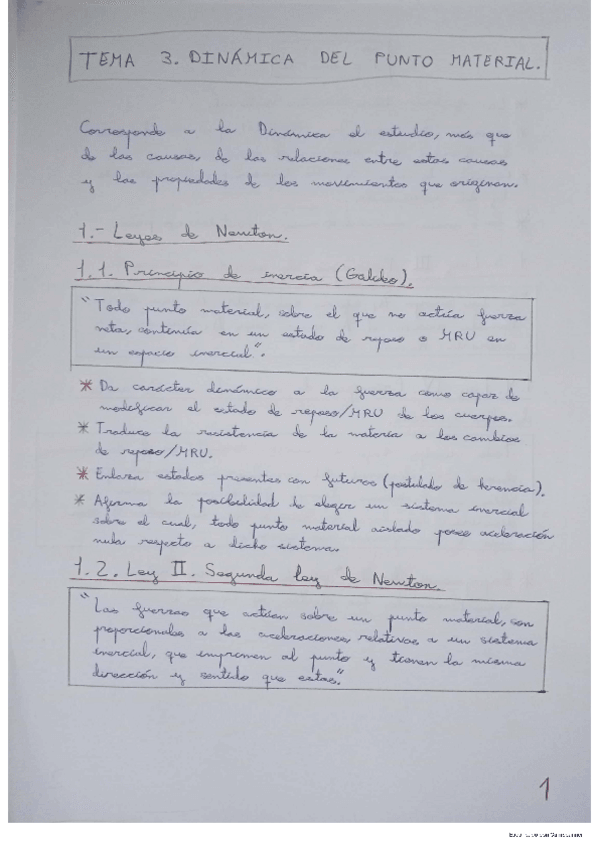 TEMA 3. DINÁMICA DEL PUNTO MATERIAL.
Corresponde a la Dinámica el estudio, más que
de las causas, de las relaciones entre estas causas
y las propiedades de los movimientos que originan.
1.- Leyes de Newton.
1.1. Principio de inercia (Galileo).
"Todo punto material, sobre el que no actúa fuerza
neta, continúa en un estado de reposo o MRU en
un espacio inercial".
* Da carácter dinámico a la fuerza como capaz de
modificar el estado de reposo/MRU de los cuerpos.
* Traduce la resistencia de la materia a los cambios
de reposo/MRU.
* Enlaza estados presentes con futuros (postulado de herencia).
* Afirma la posibilidad de elegir un sistema inercial
sobre el cual, todo punto material aislado posee aceleración
nula respecto a dicho sistema.
1.2. Ley II. Segunda ley de Newton.
"Las fuerzas que actúan sobre un punto material, son
proporcionales a las aceleraciones, relativas a un sistema
inercial, que imprimen al punto y tienen la misma
dirección y sentido que estas."
1